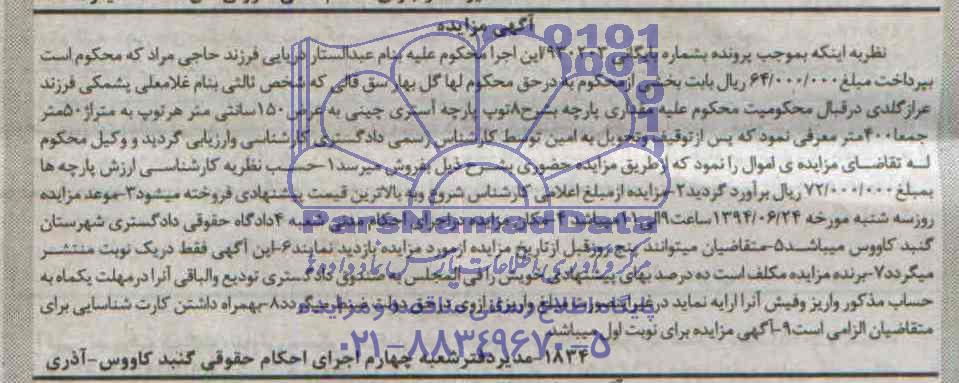 آگهی مزایده
نظر به اینکه بموجب پرونده بشماره بایگانی این اجرا محکوم علیه بنام عبدالستار دریایی فرزند حاجی مراد که محکوم است
بپرداخت مبلغ ۶۴/۰۰۰/۰۰۰ ریال بابت بخشی از محکوم به در حق محکوم لها گل بهار سق قالی که شخص ثالثی بنام غلامعلی پشمکی فرزند
عرازگلدی در قبال محکومیت محکوم علیه مقداری پارچه بشرح ۸ توپ پارچه آستری چینی به عرض ۱۵۰ سانتی متر هر توپ به متراژ ۵۰ متر
جمعا ۴۰۰ متر معرفی نمود که پس از توقیف وتحویل به امین توسط کارشناس رسمی دادگستری کارشناسی وارزیابی گردید و وکیل محکوم
لـه تقاضـای مزایده ی اموال را نمود که از طریق مزایده حضوری بشـرح ذیل بفروش میرسد۱-حسب نظریه کارشناسـی ارزش پارچه ها
بمبلغ ۷۲/۰۰۰/۰۰۰ ریال برآورد گردید۲-مزایده از مبلغ اعلامی کارشناس شروع وبه بالاترین قیمت پیشنهادی فروخته میشود۳-موعد مزایده
روزسه شنبه مورخه ۱۳۹۴/۰۶/۲۴ ساعت ۹ الی ۱۱ میباشد ۴-مکان مزایده در اجرای احکام مدنی شعبه ۴ دادگاه حقوقی دادگستری شهرستان
گنبد کاووس میباشـد۵-متقاضیان میتوانند پنج روز قبل از تاریخ مزایده از مورد مزایده بازدید نمایند۶-این آگهی فقط در یک نوبت منتشـر
میگردد۷-برنده مزایده مکلف است ده درصد بهای پیشنهادی خویش را فی المجلس به صندوق دادگستری تودیع والباقی آنرا در مهلت یکماه به
حساب مذکور واریز وفیش آنرا ارایه نماید در غیر اینصورت مبلغ واریزی از وی در حق دولت ضبط میگردد۸-بهمراه داشتن کارت شناسایی برای
متقاضیان الزامی است۹-آگهی مزایده برای نوبت اول میباشد
۱۸۳۴-مدیر دفتر شعبه چهارم اجرای احکام حقوقی گنبد کاووس-آذری
ParsNamadData
مرکز فرآوری اطلاعات پارس نماد داده ها
پایگاه اطلاع رسانی مناقصه و مزایده
۰۲۱-۸۸۳۴۹۶۷۰-۵